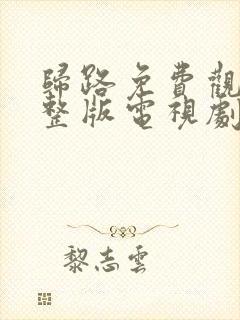 歸路免費觀
整版電視劇
黎志雲